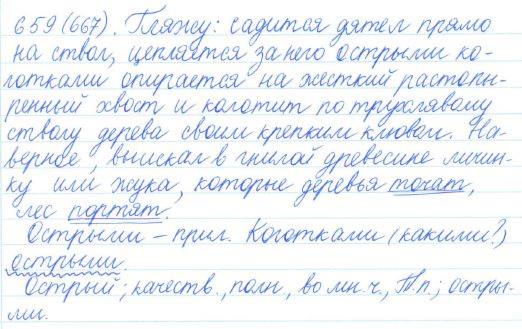 659 (667). Гляжу: садится дятел прямо
на ствол, цепляется за него острыми ко-
готками опирается на жесткий растопы-
ренный хвост и колотит по трухлявому
стволу дерева своим крепким клювом. На-
верное, выискал в гнилой древесине личин-
ку или жука, которые деревья точат,
лес портят.
Острыми – прил. Коготками (какими?)
острыми.
Острый; качеств., полн, во мн.ч., Т.п.; остры-
ми.